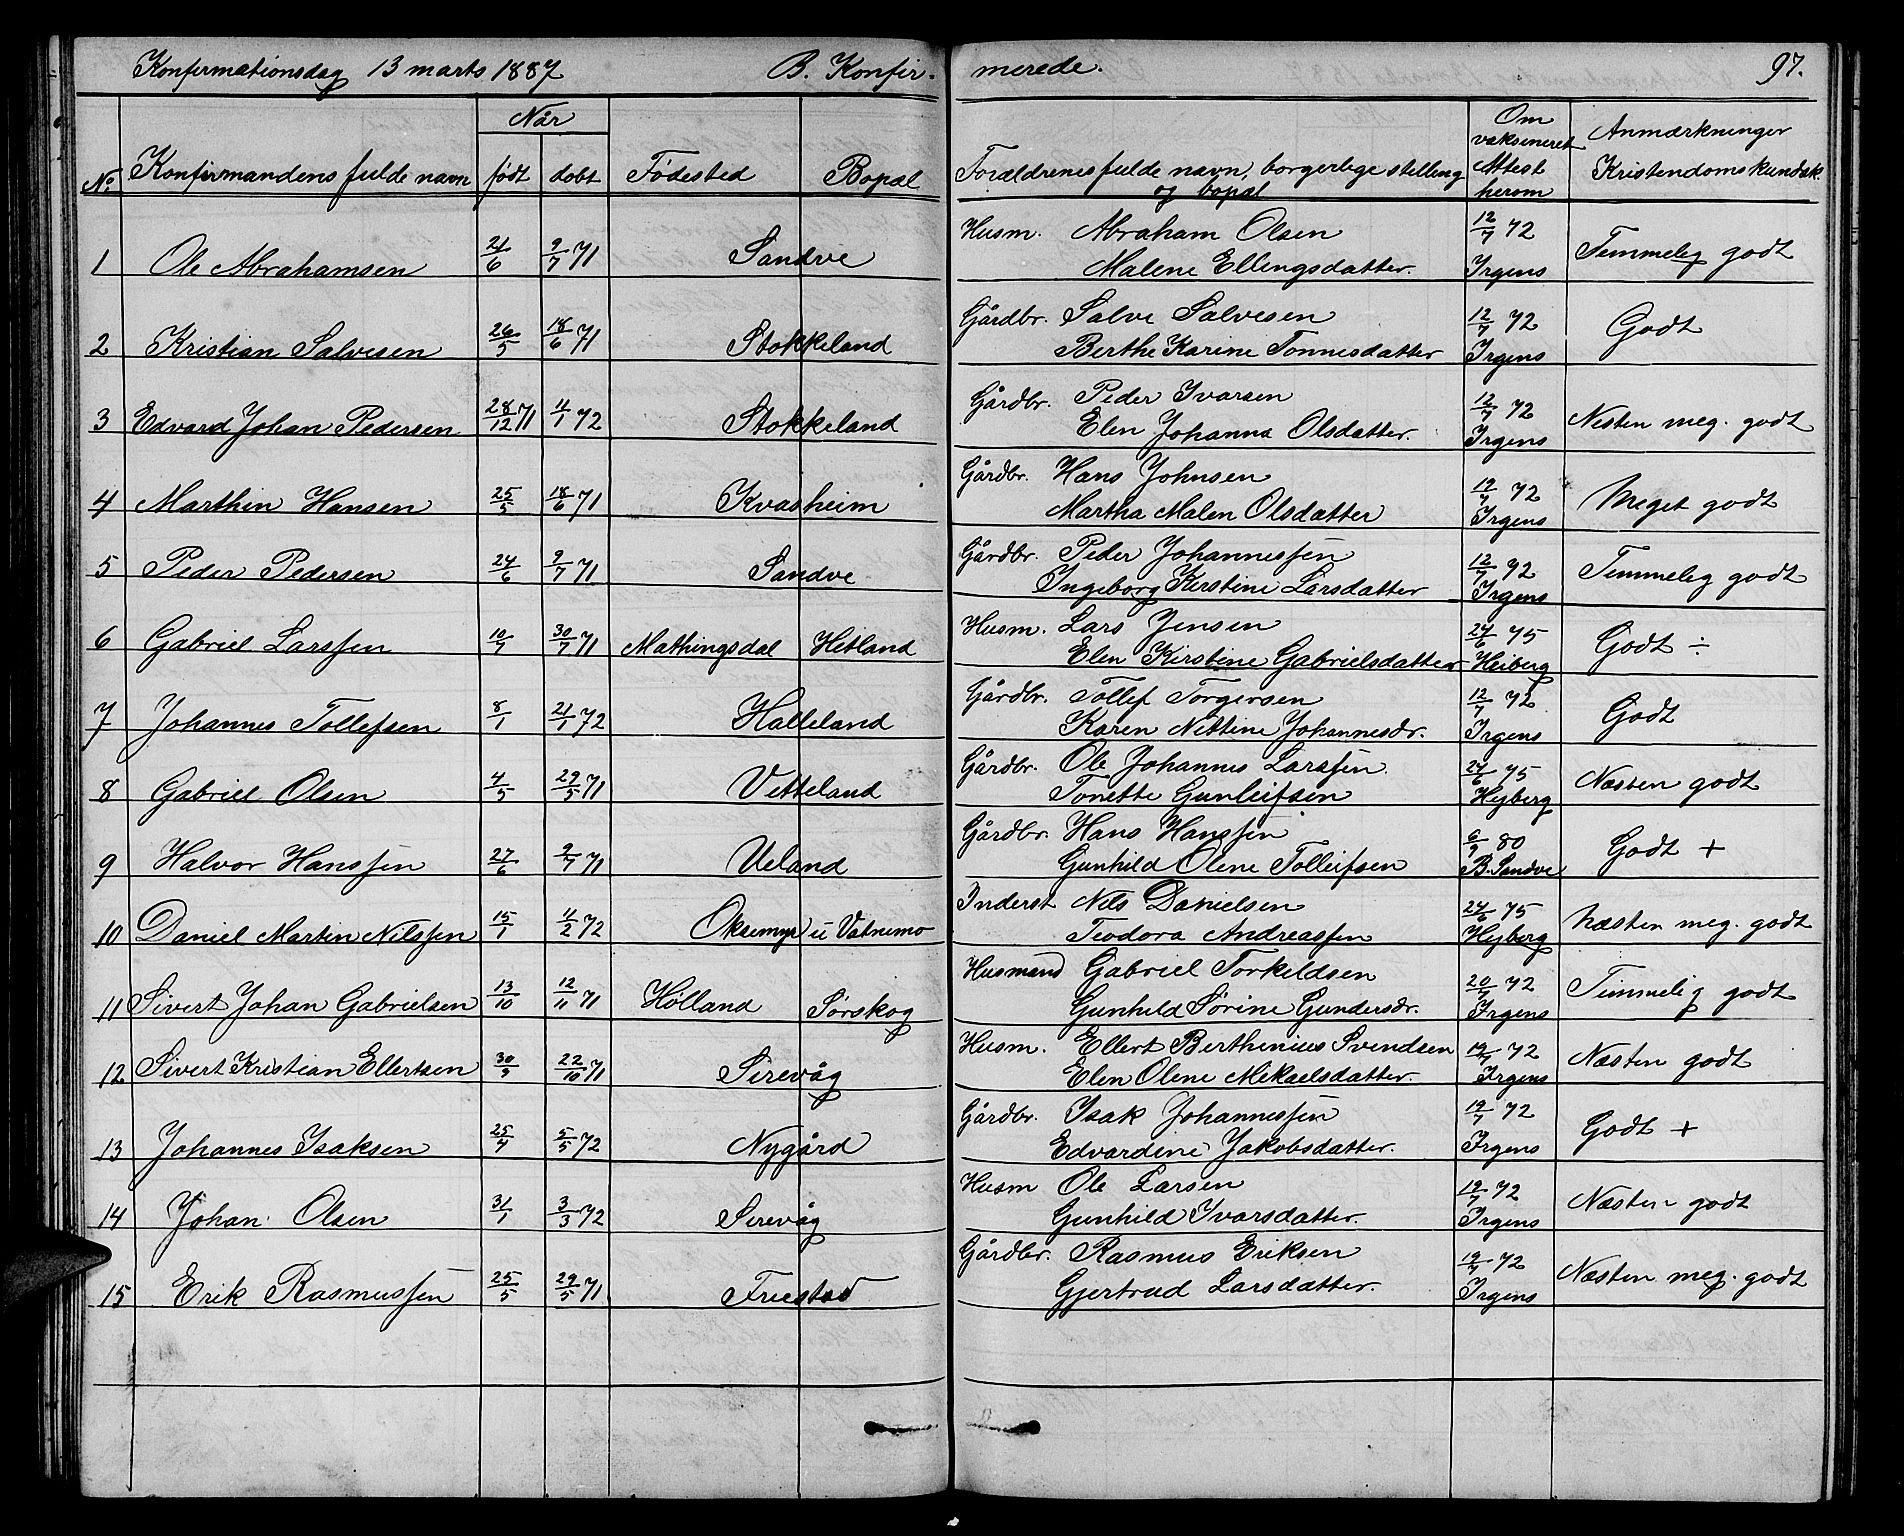 Konfirmationsdag 13 marts 1887 B. Konfirmerede. 97.
No. Konfirmandens fulde navn Når født døbt Fødested Bopæl Forældrenes fulde navn, borgerlige stilling og bopæl Om vaksineret Attest herom Anmærkninger Kristendomskundsk.
1 Ole Abrahamsen 21/6 9/7 71 Sandve Husm. Abraham Olsen 12/7 72 Temmelig godt
Malene Ellingsdatter. Irgens
2 Kristian Salvesen 26/5 18/6 71 Stokkeland Gårdbr. Salve Salvesen 12/7 72 Godt
Berthe Karine Tønnesdatter Irgens
3 Edvard Johan Pedersen 28/12 71 4/1 72 Stokkeland Gårdbr. Peder Ivarsen 12/7 72 Nesten meg. godt
Elen Johanna Olsdatter. Irgens
4 Marthin Hansen 25/5 18/6 71 Kvasheim Gårdbr. Hans Johnsen 19/7 72 Meget godt
Martha Malen Olsdatter Irgens
5 Peder Pedersen 24/6 9/7 71 Sandve Gårdbr. Peder Johannessen 12/7 92 Temmelig godt
Ingeborg Kirstine Larsdatter Irgens
6 Gabriel Larssen 10/7 30/7 71 Mathingsdal Hetland Husm. Lars Jensen 24/6 75 Godt ÷
Elen Kirstine Gabrielsdatter Heiberg
7 Johannes Tollefsen 8/1 21/1 72 Halleland Gårdbr. Tollef Torgersen 12/7 72 Godt
Karen Nittine Johannesdr. Irgens
8 Gabriel Olsen 4/5 29/5 71 Vetteland Gårdbr. Ole Johannes Larssen 24/6 75 Næsten godt
Tonette Gunleifsen Hejberg
9 Halvor Hanssen 27/6 9/7 71 Ueland Gårdbr. Hans Hanssen 6/9 80 Godt +
Gunhild Olene Tolleifsen B. Sandve
10 Daniel Martin Nilssen 15/1 4/2 72 Oksemyr u Vatnemo Inderst Nils Danielsen 24/6 75 Næsten meg. godt
Teodora Andreassen Hejberg
11 Sivert Johan Gabrielsen 13/10 12/11 71 Hølland Sørskog Husmand Gabriel Torkeldsen 20/7 72 Temmelig godt
Gunhild Sørine Gundersdr. Irgens
12 Sivert Kristian Ellertsen 30/9 22/10 71 Sirevåg Husm. Ellert Berthinius Svendsen 19/7 72 Næsten godt
Elen Olene Mikaelsdatter. Irgens
13 Johannes Isaksen 25/4 5/5 72 Nygård Gårdbr. Isak Johannessen 19/7 72 Godt +
Edvardine Jakobsdatter. Irgens
14 Johan Olsen 31/1 3/3 72 Sirevåg Husm Ole Larsen 19/7 72 Næsten godt
Gunhild Ivarsdatter. Irgens
15 Erik Rasmussen 25/5 29/5 71 Fuestad Gårdbr. Rasmus Eriksen 19/7 72 Næsten meg. godt
Gjertrud Larsdatter. Irgens